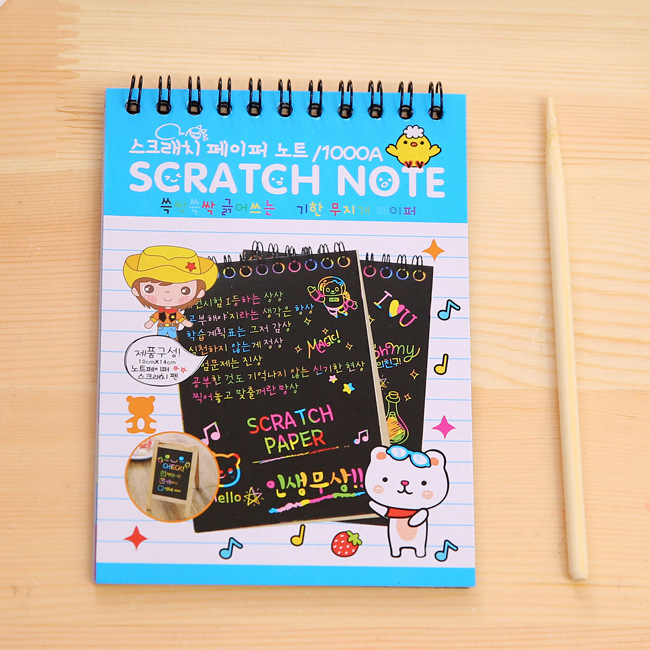 스크래치 페이퍼 노트 /1000A
SCRATCH NOTE
쓱싹쓱싹 긁어쓰는 기한 무지개 페이퍼
1등하는 상상
공부해야지라는 생각은 항상
학습계획표는 그저 감상
실천하지 않는게 정상
험문제는 진상
공부한 것도 기억나지 않는 신기한 현상
찍어놓고 맞출꺼란 망상
MAGIC!
I U
Oh my
의친구
제품구성!
10cmX14cm
노트페이퍼
스크래치 펜
SCRATCH
PAPER
CHECK!
Hello
인생무상!!